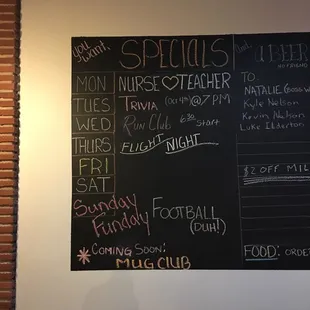 you want,
SPECIALS
U BEER
MON NURSE♡TEACHER
TO:
TUES TRIVIA @7PM
NATALIE
Kyle Nelson
WED Run Club 6:30 Start
Kevin Nelson
Luke
THURS FLIGHT NIGHT
FRI
$2 OFF MIL
SAT
Sunday Funday
FOOTBALL
(DUH!)
*COMING SOON:
FOOD: ORDE
MUG CLUB